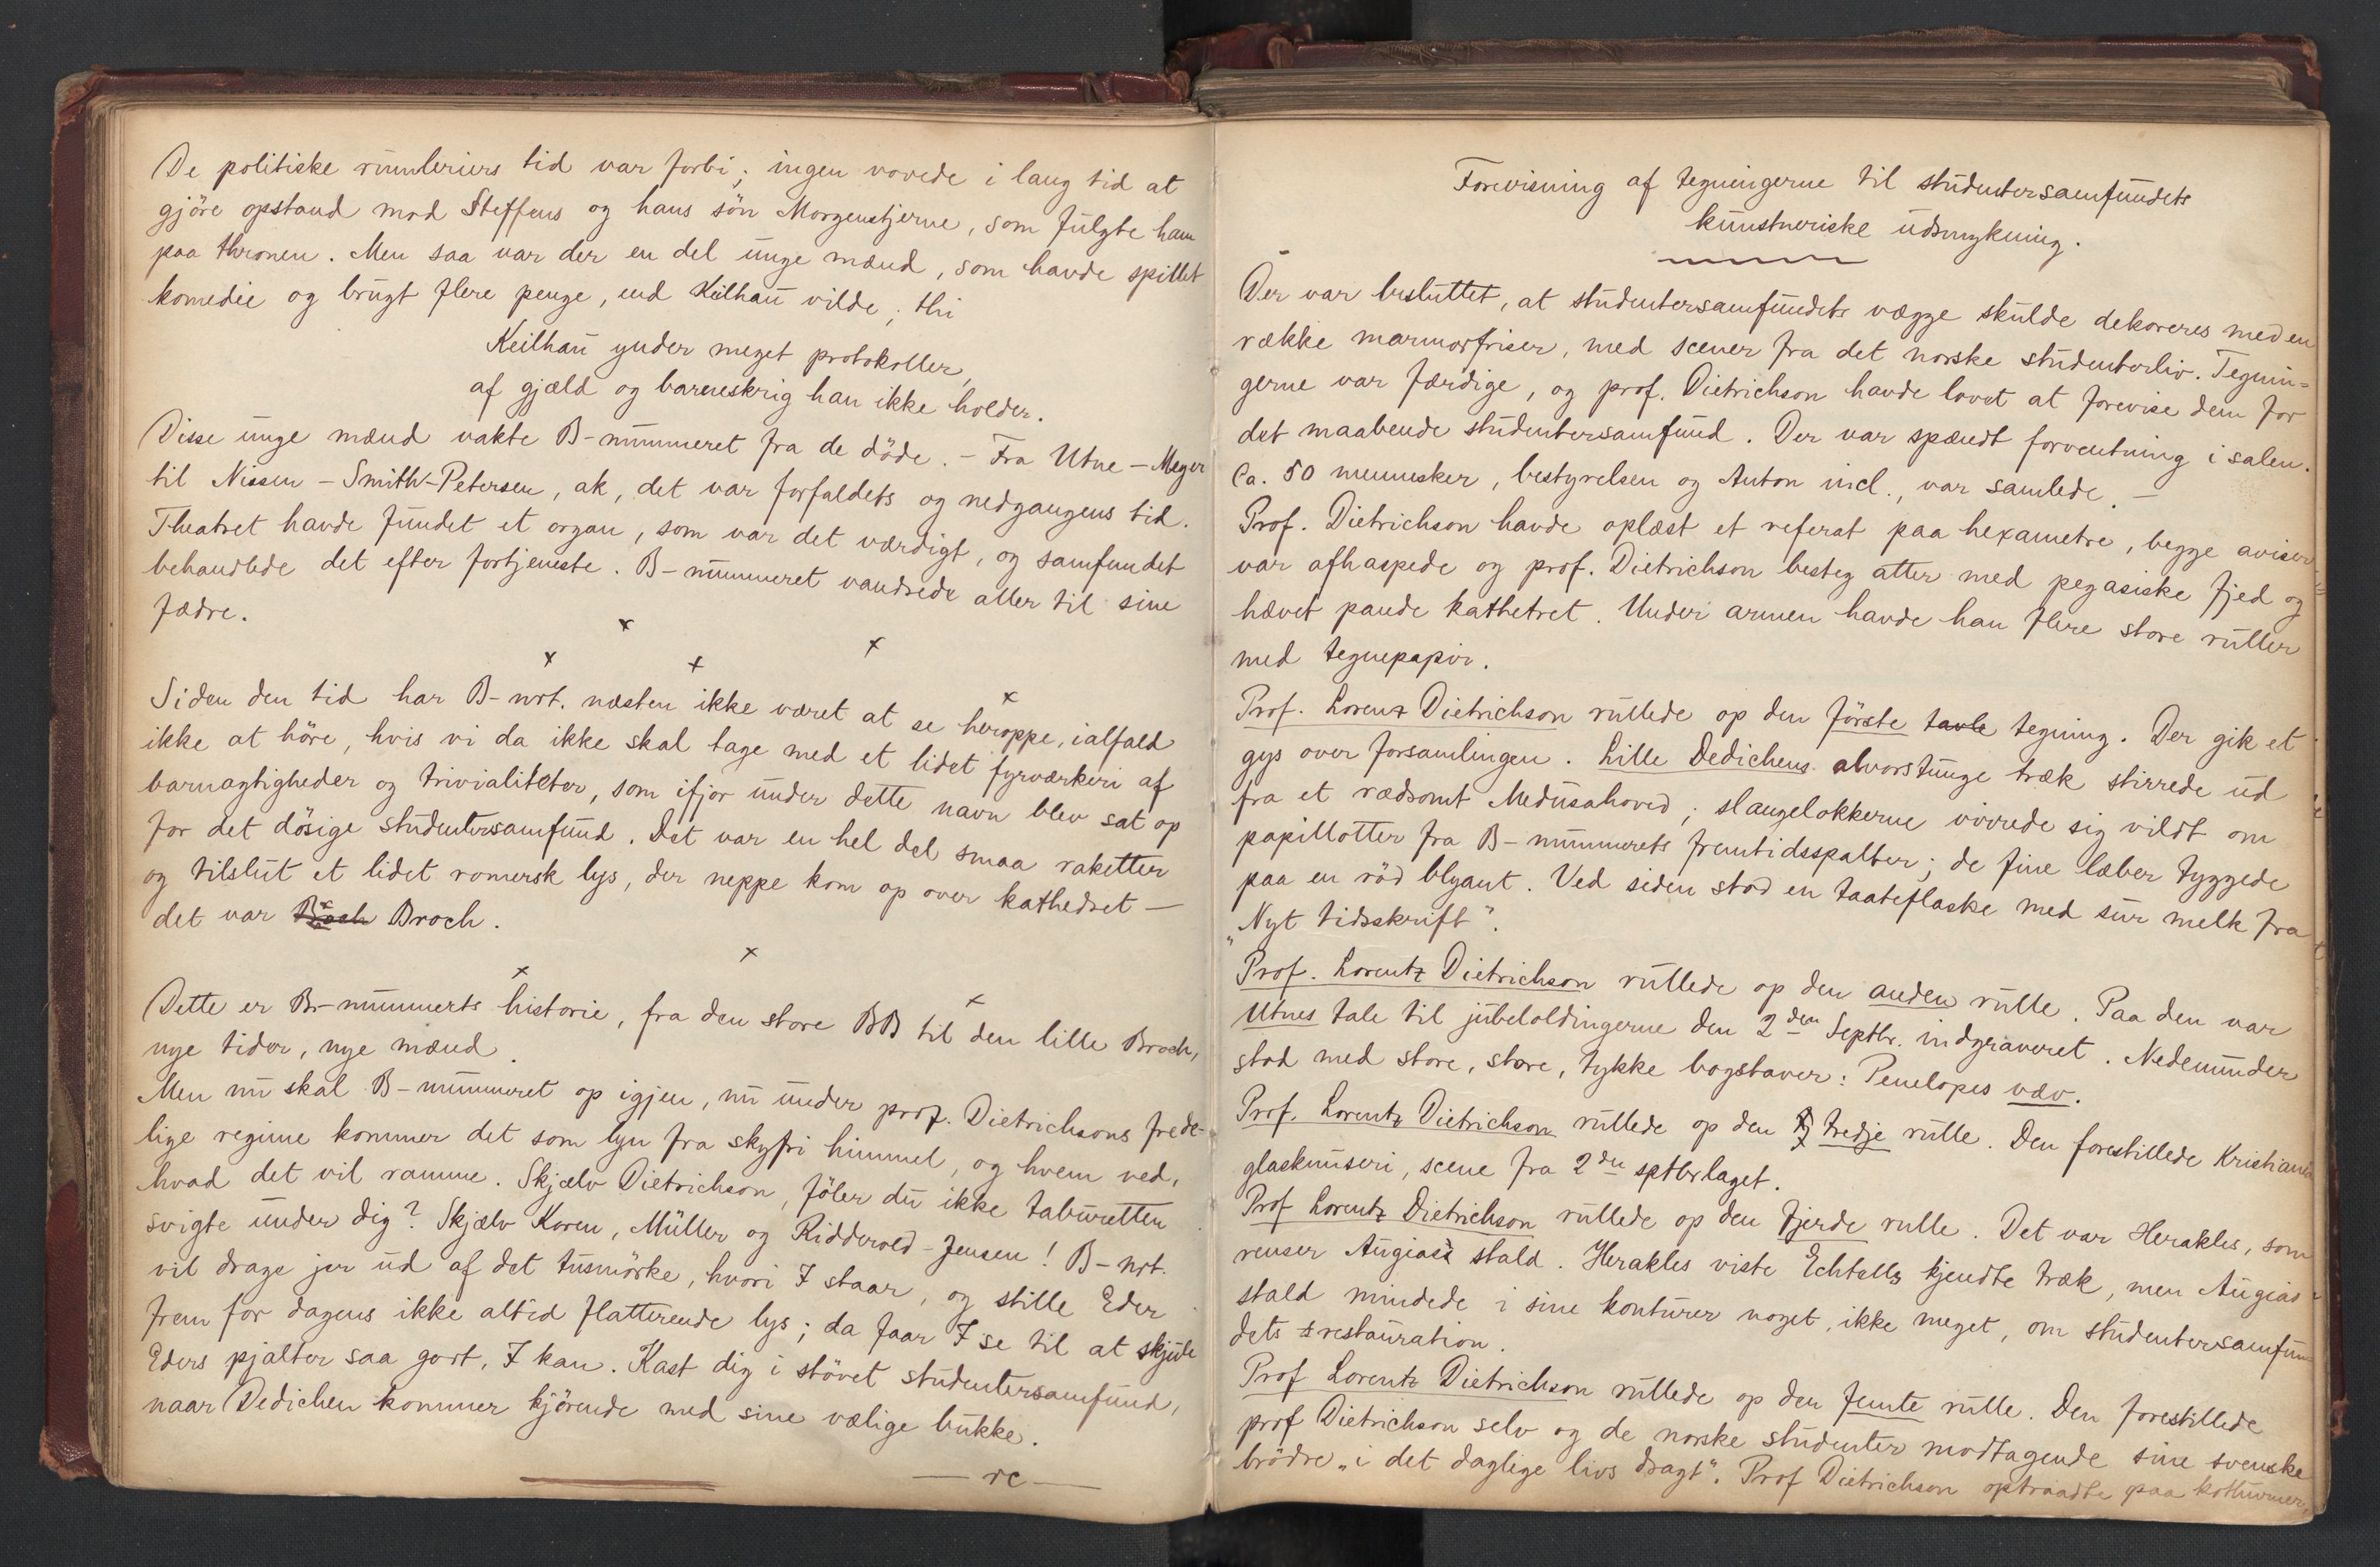 De politiske rumleriers tid var forbi; ingen vovede i lang tid at
gjöre opstand mod Steffens og hans sön Morgenstjerne, som fulgte ham
paa thronen. Men saa var der en del unge mænd, som havde spillet
komedie og brugt flere penge, end Keilhau vilde; thi
Keilhau ynder meget protokoller,
af gjæld og barneskrig han ikke holder.
Disse unge mænd vakte B-nummeret fra de döde. – Fra Utne – Meyer
til Nissen – Smith-Petersen, ak, det var forfaldets og nedgangens tid.
Theatret havde fundet et organ, som var det værdigt, og samfundet
behandlede det efter fortjeneste. B-nummeret vandrede atter til sine
fædre.
x x x x x
Siden den tid har B-nrt. næsten ikke været at se heroppe, ialfald
ikke at höre, hvis vi da ikke skal tage med et lidet fyrværkeri af
barnagtigheder og trivialiteter, som ifjor under dette navn blev sat op
for det dösige studentersamfund. Det var en hel del smaa raketter
og tilslut et lidet romersk lys, der neppe kom op over kathedret —
det var Broch.
x x x
Dette er Br-nummerts historie, fra den store BB til den lille Broch,
nye tider, nye mænd.
Men nu skal B-nummeret op igjen, nu under prof. Dietrichsons frede-
lige regime kommer det som lyn fra skyfri himmel, og hvem ved,
hvad det vil ramme. Skjælv Dietrichson, föler du ikke taburetten
svigte under dig? Skjælv Koren, Müller og Riddervold-Jensen! B-nrt.
vil drage jer ud af det tusmörke, hvori I staar, og stille Eder
frem for dagens ikke altid flatterende lys; da faar I se til at skjule
Eders pjalter saa godt, I kan. Kast dig i stövet studentersamfund,
naar Dedichen kommer kjörende med sine vælige bukke.
— rc —
Forevisning af tegningerne til studentersamfundets
kunstneriske udsmykning.
Der var besluttet, at studentersamfundets vægge skulde dekoreres med en
række marmorfriser, med scener fra det norske studenterliv. Tegnin-
gerne var færdige, og prof. Dietrichson havde lovet at forevise dem for
det maabende studentersamfund. Der var spændt forventning i salen.
Ca. 50 mennesker, bestyrelsen og Anton incl., var samlede. —
Prof. Dietrichson havde oplæst et referat paa hexametre, begge aviser
var afhaspede og prof. Dietrichson besteg atter med pegasiske fjed og
hævet pande kathetret. Under armen havde han flere store ruller
med tegnepapir.
Prof. Lorenz Dietrichson rullede op den förste tavle tegning. Der gik et
gys over forsamlingen. Lille Dedichens alvorstunge træk stirrede ud
fra et rædsomt Medusahoved; slangelokkerne virrede sig vildt om
papillotter fra B-nummerets fremtidsspalter; de fine læber tyggede
paa en röd blyant. Ved siden stod en taateflaske med sur melk fra
„Nyt tidsskrift".
Prof. Lorentz Dietrichson rullede op den anden rulle. Paa den var
Utnes tale til jubeloldingerne den 2den Septbr. indgraveret. Nedenunder
stod med store, store, tykke bogstaver: Penelopes væv.
Prof. Lorentz Dietrichson rullede op den tredje rulle. Den forestillede Kristiania
glasknuseri, scene fra 2den sptbrlaget.
Prof Lorentz Dietrichson rullede op den fjerde rulle. Det var Herakles, som
renser Augias's stald. Herakles viste Echtells kjendte træk, men Augias
stald mindede i sine konturer noget, ikke meget, om studentersamfun-
dets restauration.
Prof Lorentz Dietrichson rullede op den femte rulle. Den forestillede
prof Dietrichson selv og de norske studenter modtagende sine svenske
brödre „i det daglige livs dragt". Prof Dietrichson optraadte paa kothurner,